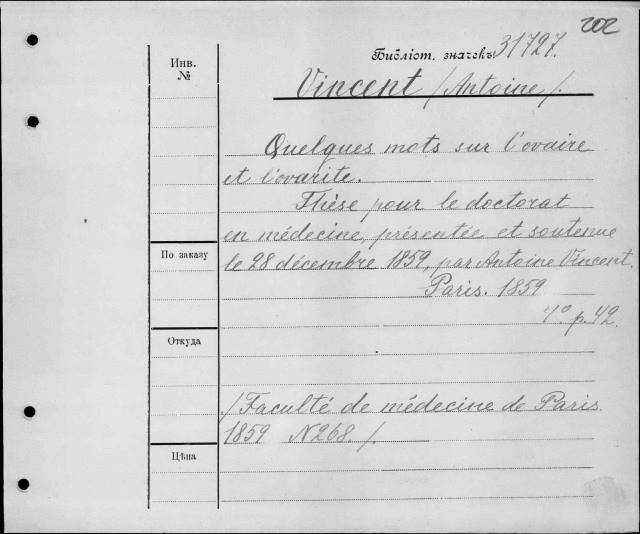 202
Инв. №
Библіот. значекъ 31727.
Vincent /Antoine/.
Quelques mots sur l'ovaire
et l'ovarite.
Thèse pour le doctorat
en médecine, présentée et soutenue
По заказу
le 28 décembre 1859, par Antoine Vincent.
Paris. 1859
4° p. 42
Откуда
/Faculté de médecine de Paris.
1859 N268./
Цѣна